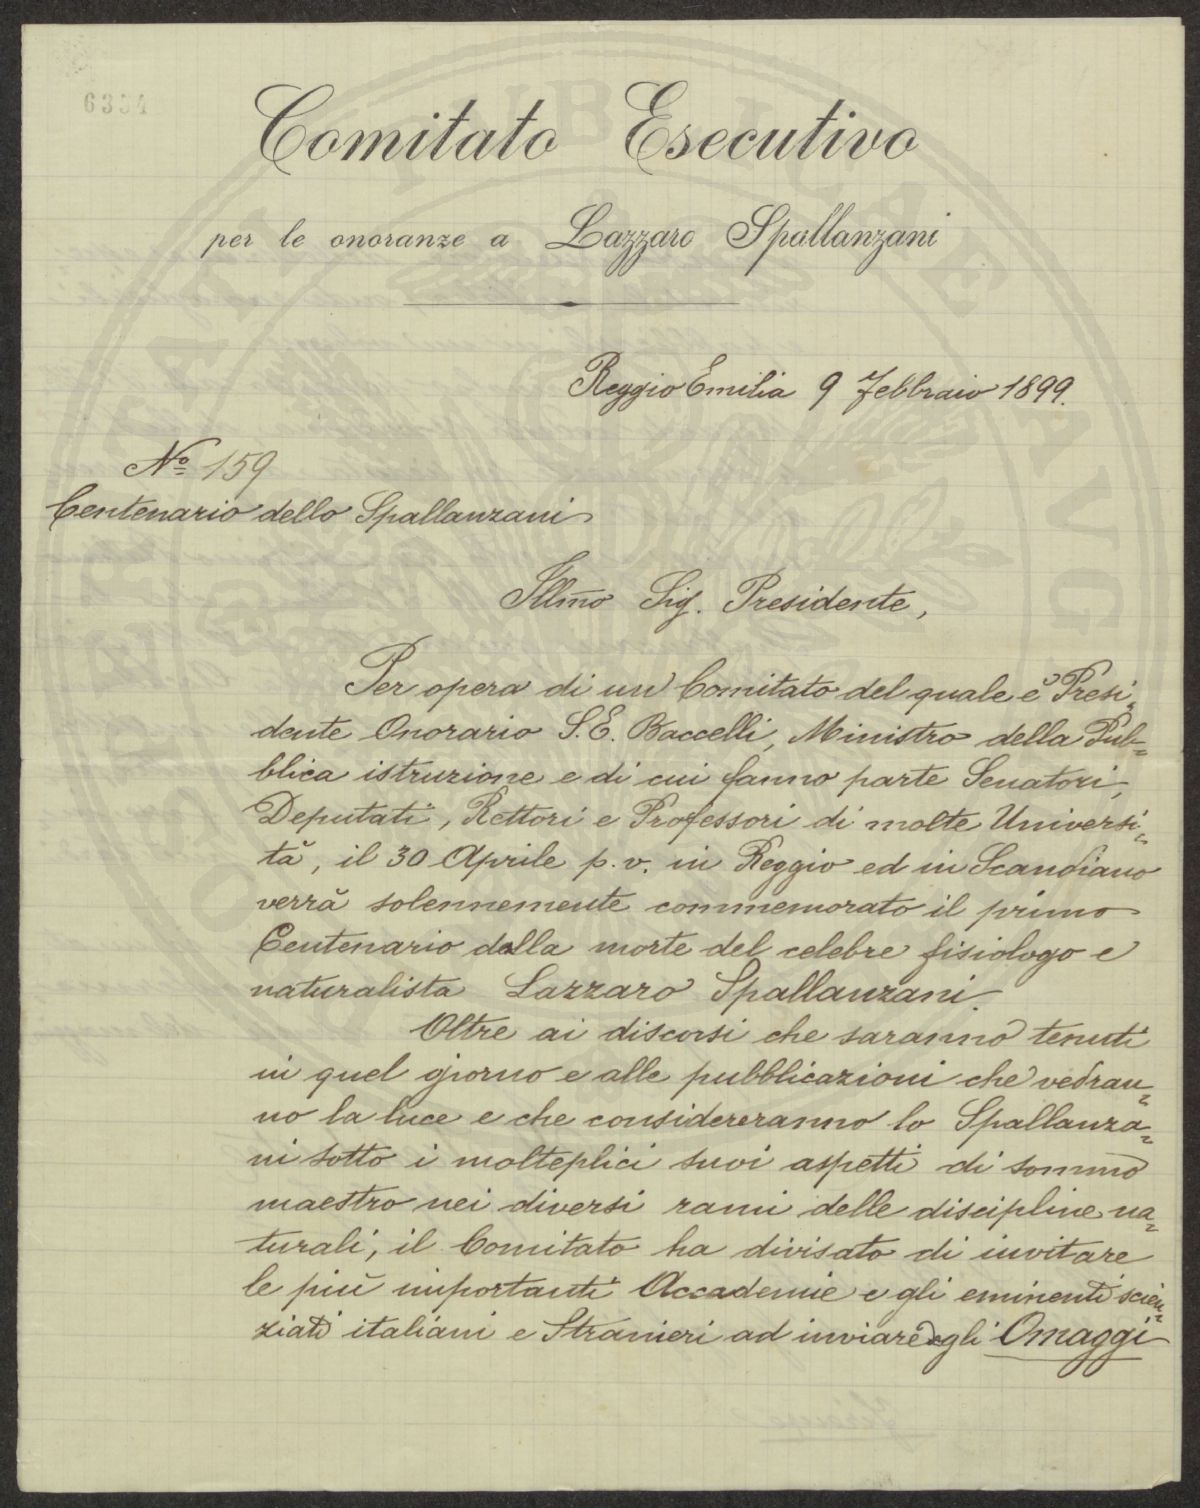 Comitato Esecutivo
per le onoranze a Lazzaro Spallanzani
Reggio Emilia 9 Febbraio 1899.
Nº 159
Centenario dello Spallanzani
Illmo Sig. Presidente,
Per opera di un Comitato del quale è Presi=
dente Onorario S. E. Baccelli, Ministro della Pub=
blica istruzione e di cui fanno parte Senatori,
Deputati, Rettori e Professori di molte Universi=
tà, il 30 Aprile p. v. in Reggio ed in Scandiano
verrà solennemente commemorato il primo
Centenario dalla morte del celebre fisiologo e
naturalista Lazzaro Spallanzani.
Oltre ai discorsi che saranno tenuti
in quel giorno e alle pubblicazioni che vedran=
no la luce e che considereranno lo Spallanza=
ni sotto i molteplici suoi aspetti di sommo
maestro nei diversi rami delle discipline na=
turali, il Comitato ha divisato di invitare
le più importanti Accademie e gli eminenti scien=
ziati italiani e Stranieri ad inviare degli Omaggi